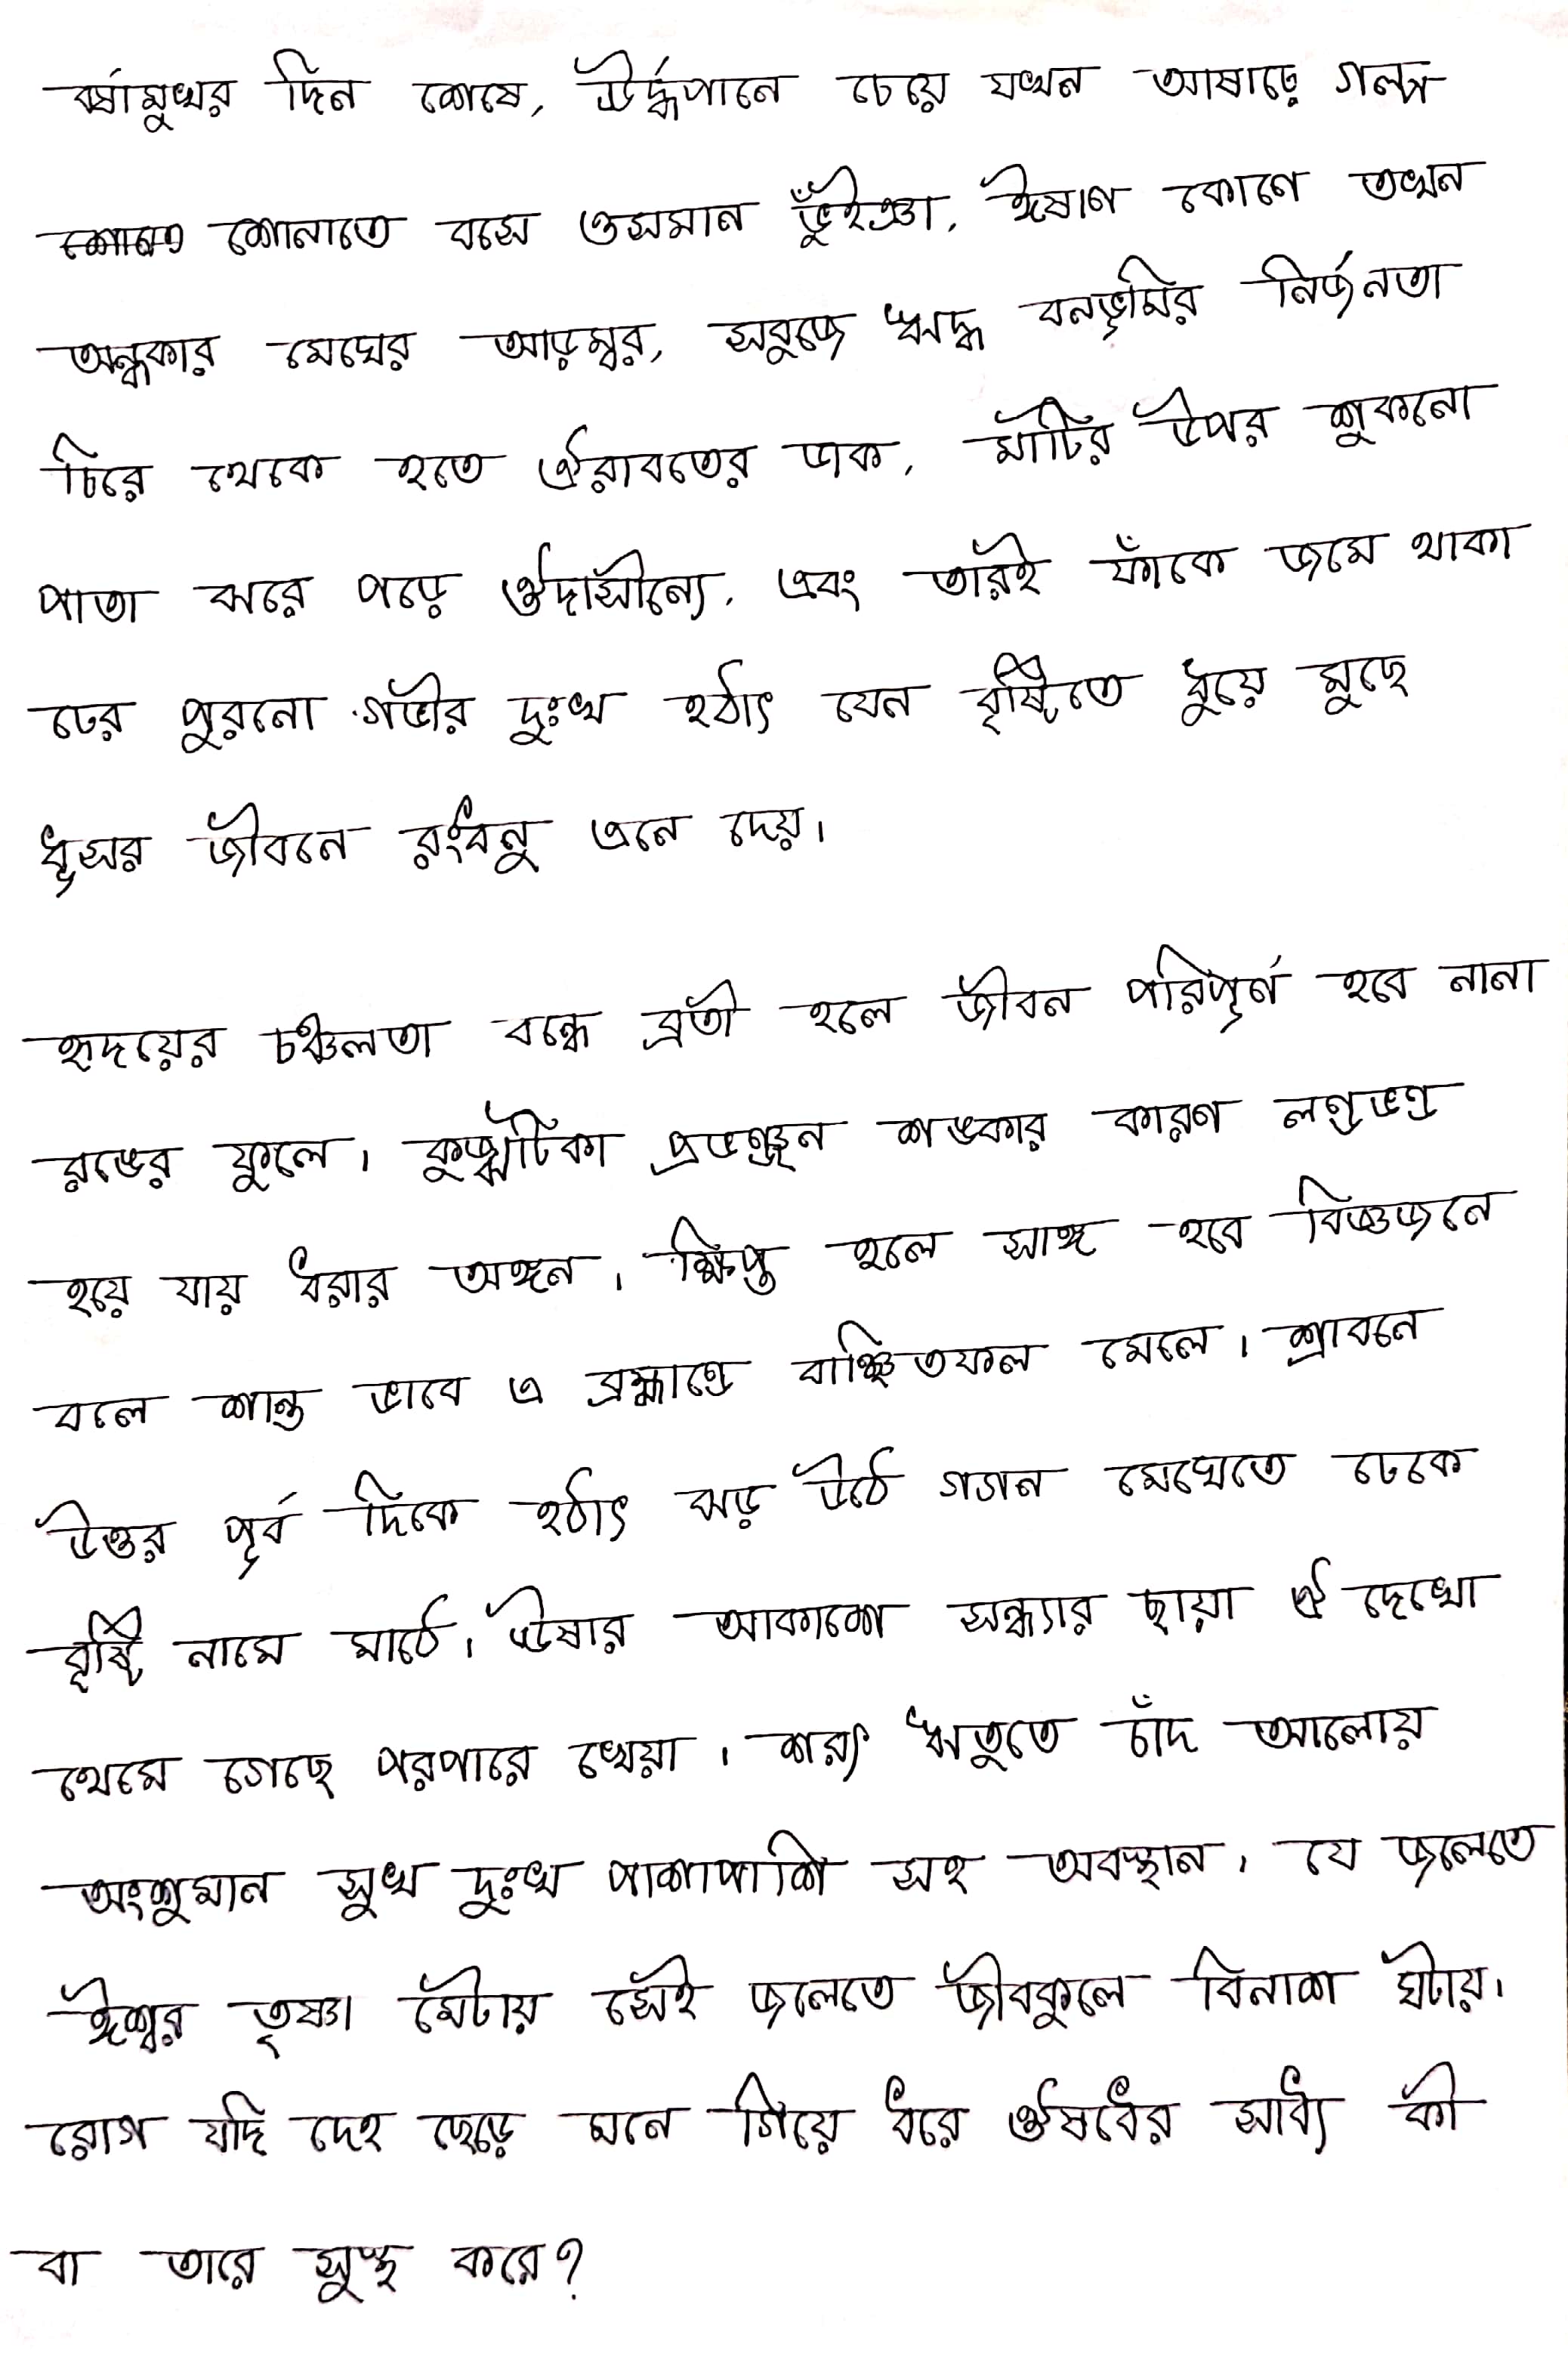 বর্ষামুখর দিন শেষে, ঊর্দ্ধপানে চেয়ে যখন আষাঢ়ে গল্প
শোনাতে বসে ওসমান ভুঁইঞা, ঈষাণ কোণে তখন
অন্ধকার মেঘের আড়ম্বর, সবুজে ঋদ্ধ বনভূমির নির্জনতা
চিরে থেকে হতে ঐরাবতের ডাক, মাটির উপর শুকনো
পাতা ঝরে পড়ে ঔদাসীন্যে, এবং তারই ফাঁকে জমে থাকা
ঢের পুরনো গভীর দুঃখ হঠাৎ যেন বৃষ্টিতে ধুয়ে মুছে
ধূসর জীবনে রংধনু এনে দেয়।
হৃদয়ের চঞ্চলতা বন্ধে ব্রতী হলে জীবন পরিপূর্ণ হবে নানা
রঙের ফুলে। কুজ্ঝটিকা প্রভঞ্জন শঙ্কার কারণ লণ্ডভণ্ড
হয়ে যায় ধরার অঙ্গন। ক্ষিপ্ত হলে সাঙ্গ হবে বিজ্ঞজনে
বলে শান্ত ভাবে এ ব্রহ্মাণ্ডে বাঞ্ছিতফল মেলে। শ্রাবনে
উত্তর পূর্ব দিকে হঠাৎ ঝড় উঠে গগন মেঘেতে ঢেকে
বৃষ্টি নামে মাঠে। ঊষার আকাশে সন্ধ্যার ছায়া ঐ দেখো
থেমে গেছে পরপারে খেয়া। শরৎ ঋতুতে চাঁদ আলোয়
অংশুমান সুখ দুঃখ পাশাপাশি সহ অবস্থান। যে জলেতে
ঈশ্বর তৃষ্ণা মেটায় সেই জলেতে জীবকুলে বিনাশ ঘটায়।
রোগ যদি দেহ ছেড়ে মনে গিয়ে ধরে ঔষধের সাধ্য কী
বা তারে সুস্থ করে?